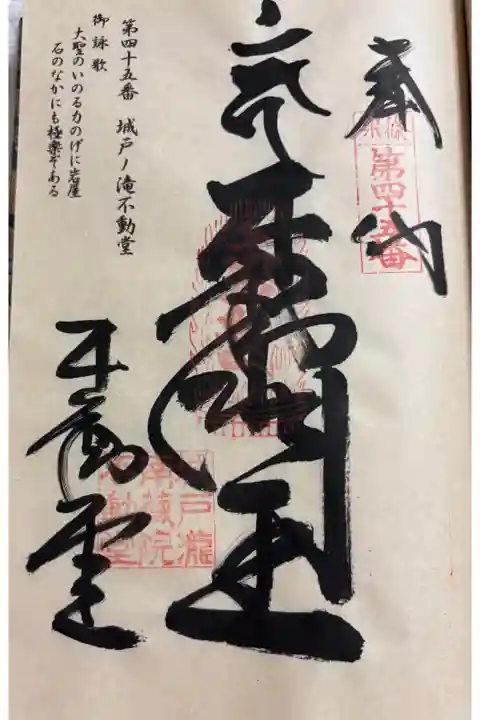 奉
篠栗
第四十五番
不動明王
不動堂
城戸瀧
南蔵院
不動堂
第四十五番 城戸ノ滝不動堂
御詠歌
大聖のいのる力のげに岩屋
石のなかにも極楽ぞある